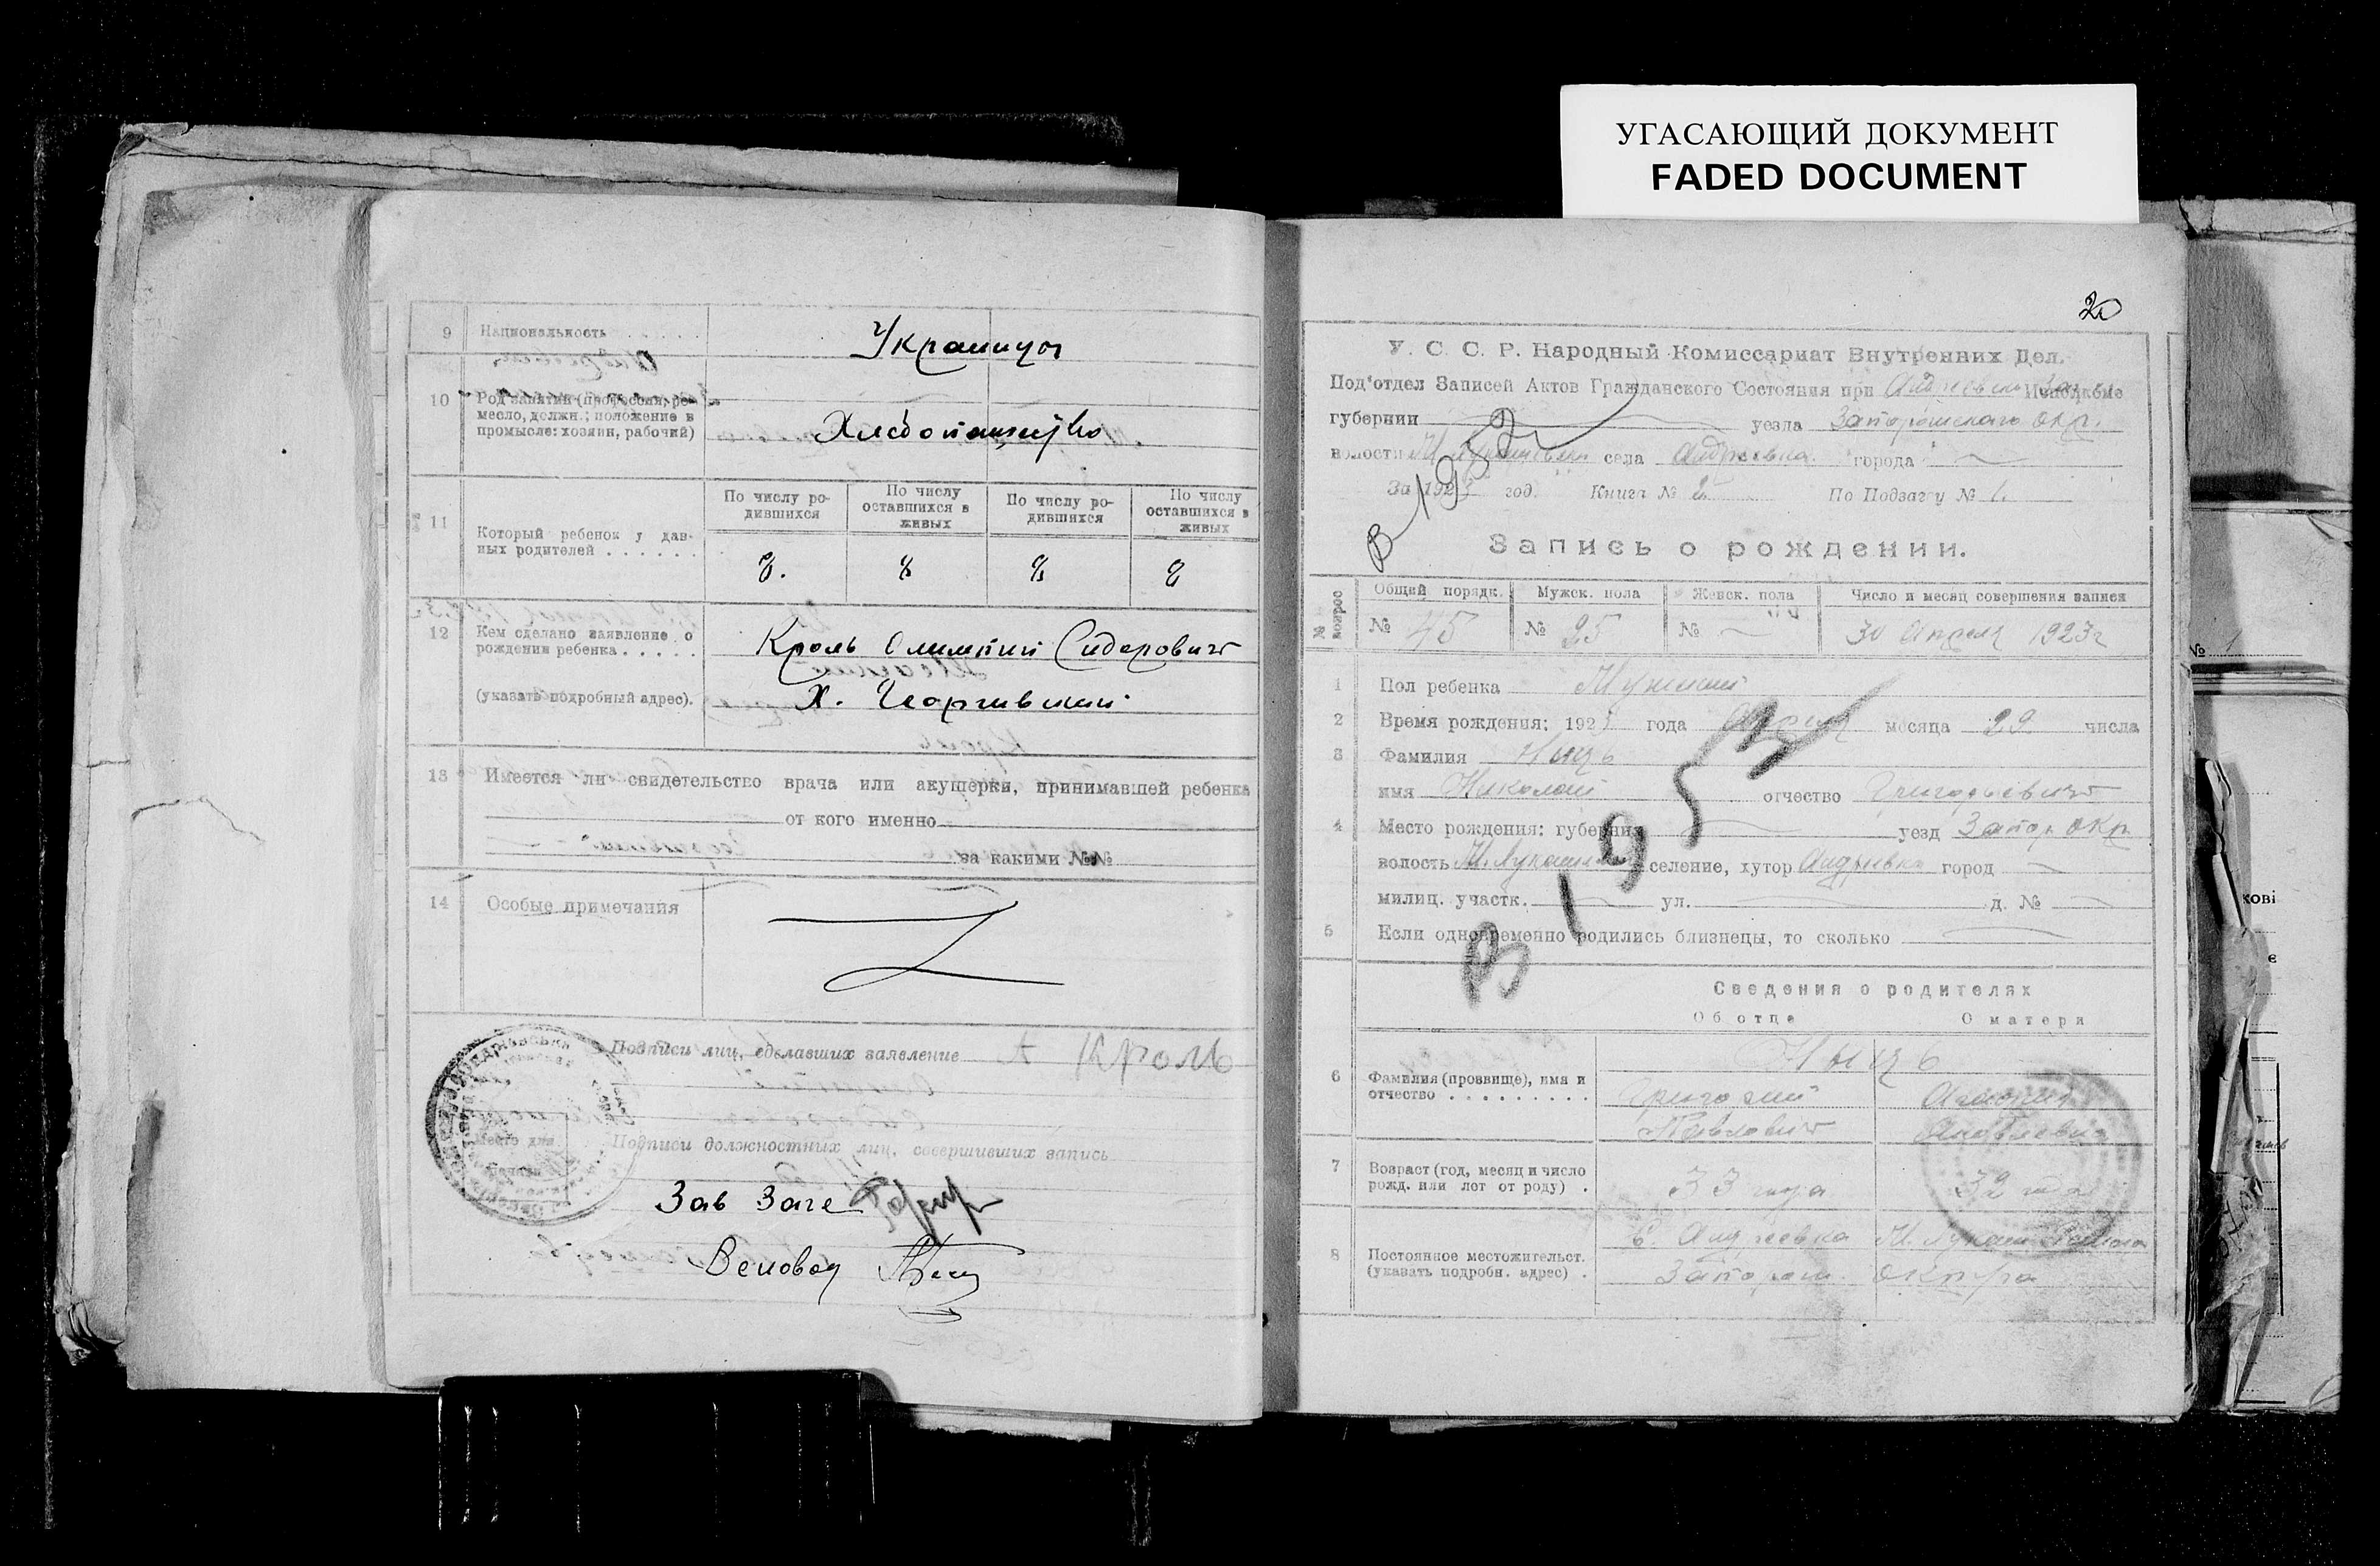 УГАСАЮЩИЙ ДОКУМЕНТ
FADED DOCUMENT
9 Национальность . . . . . Украинцы
10 Род занятий (професси, ре-
месло, должн.; положение в
промысле: хозяин, рабочий)
Хлебопашество
11 Который ребенок у дан-
ных родителей . . . . . .
По числу ро-
дившихся
По числу
оставшихся в
живых
По числу ро-
дившихся
По числу
оставшихся в
живых
8. 8 8 8
12 Кем сделано заявление о
рождении ребенка . . . . .
Кроль Олимпий Сидорович
(указать подробный адрес).
Х. Георгиевский
13 Имеется ли свидетельство врача или акушерки, принимавшей ребенка
от кого именно
за какими №№
14 Особые примечания
Подписи лиц, сделавших заявление А Кроль
Место для
печати
Подписи должностных лиц, совершивших запись
Зав Загс
20
У. С. С. Р. Народный Комиссариат Внутренних Дел.
Под'отдел Записей Актов Гражданского Состояния при
губернии уезда Запорожскаго Окр.
волости села Андреевка города
За 1923 год. Книга № 2 По Подзагсу № 1.
В 1952
Запись о рождении.
№ вопрос
Общей порядк. Мужск. пола Женск. пола Число и месяц совершения записи
№ 45 № 25 № 30 Апреля 1923 г
1 Пол ребенка Мужской
2 Время рождения: 1923 года Апреля месяца 29 числа
3 Фамилия Ныць
имя Николай отчество Григорьевич
4 Место рождения: губерния уезд Запор Окр
волость селение, хутор Андреевка город
милиц. участк. ул. д. №
5 Если одновременно родились близнецы, то сколько
В 1953
Сведения о родителях
Об отце О матери
6 Фамилия (прозвище), имя и
отчество . . . . . . . . .
Ныць
Григорий
Павлович Яковлевна
7 Возраст (год, месяц и число
рожд. или лет от роду) .
33 года 32 года
8 Постоянное местожительст.
(указать подробн. адрес) .
с. Андреевка
Запорож. округа
№ 1